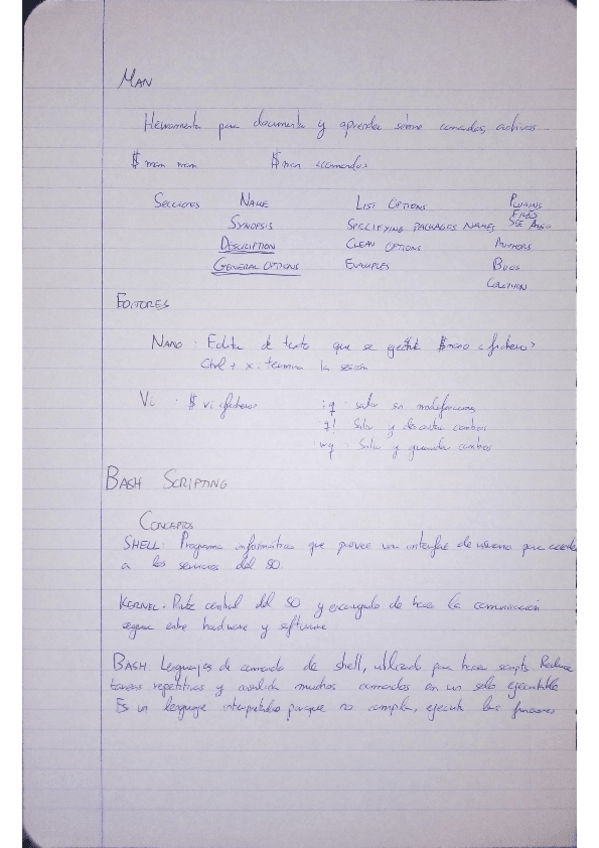 MAN
Herramienta para documentar y aprender sobre comandos, activos
$ man man $ man <comando>
SECCIONES NAME LIST OPTIONS PLUGINS
FILES
SYNOPSIS SPECIFYING PACKAGES NAMES SEE ALSO
DESCRIPTION CLEAN OPTIONS AUTHORS
GENERAL OPTIONS EXAMPLES BUGS
COLOPHON
EDITORES
NANO: Editor de texto que se ejecuta $nano <fichero>
Ctrl + x: termina la sesión
Vi : $ vi fichero :q : salir sin modificaciones
q! Salir y descartar cambios
:wq : Salir y guardar cambios
BASH SCRIPTING
CONCEPTOS
SHELL: Programa informático que provee una interfaz de usuario para acceder
a los servicios del SO
KERNEL. Parte central del SO y encargado de hacer la comunicación
segura entre hardware y software
BASH: Lenguajes de comando de shell, utilizado para hacer scripts. Reduce
tareas repetitivas y muchos comandos en un solo ejecutable
Es un lenguaje interpretado porque no compila, ejecuta las funciones